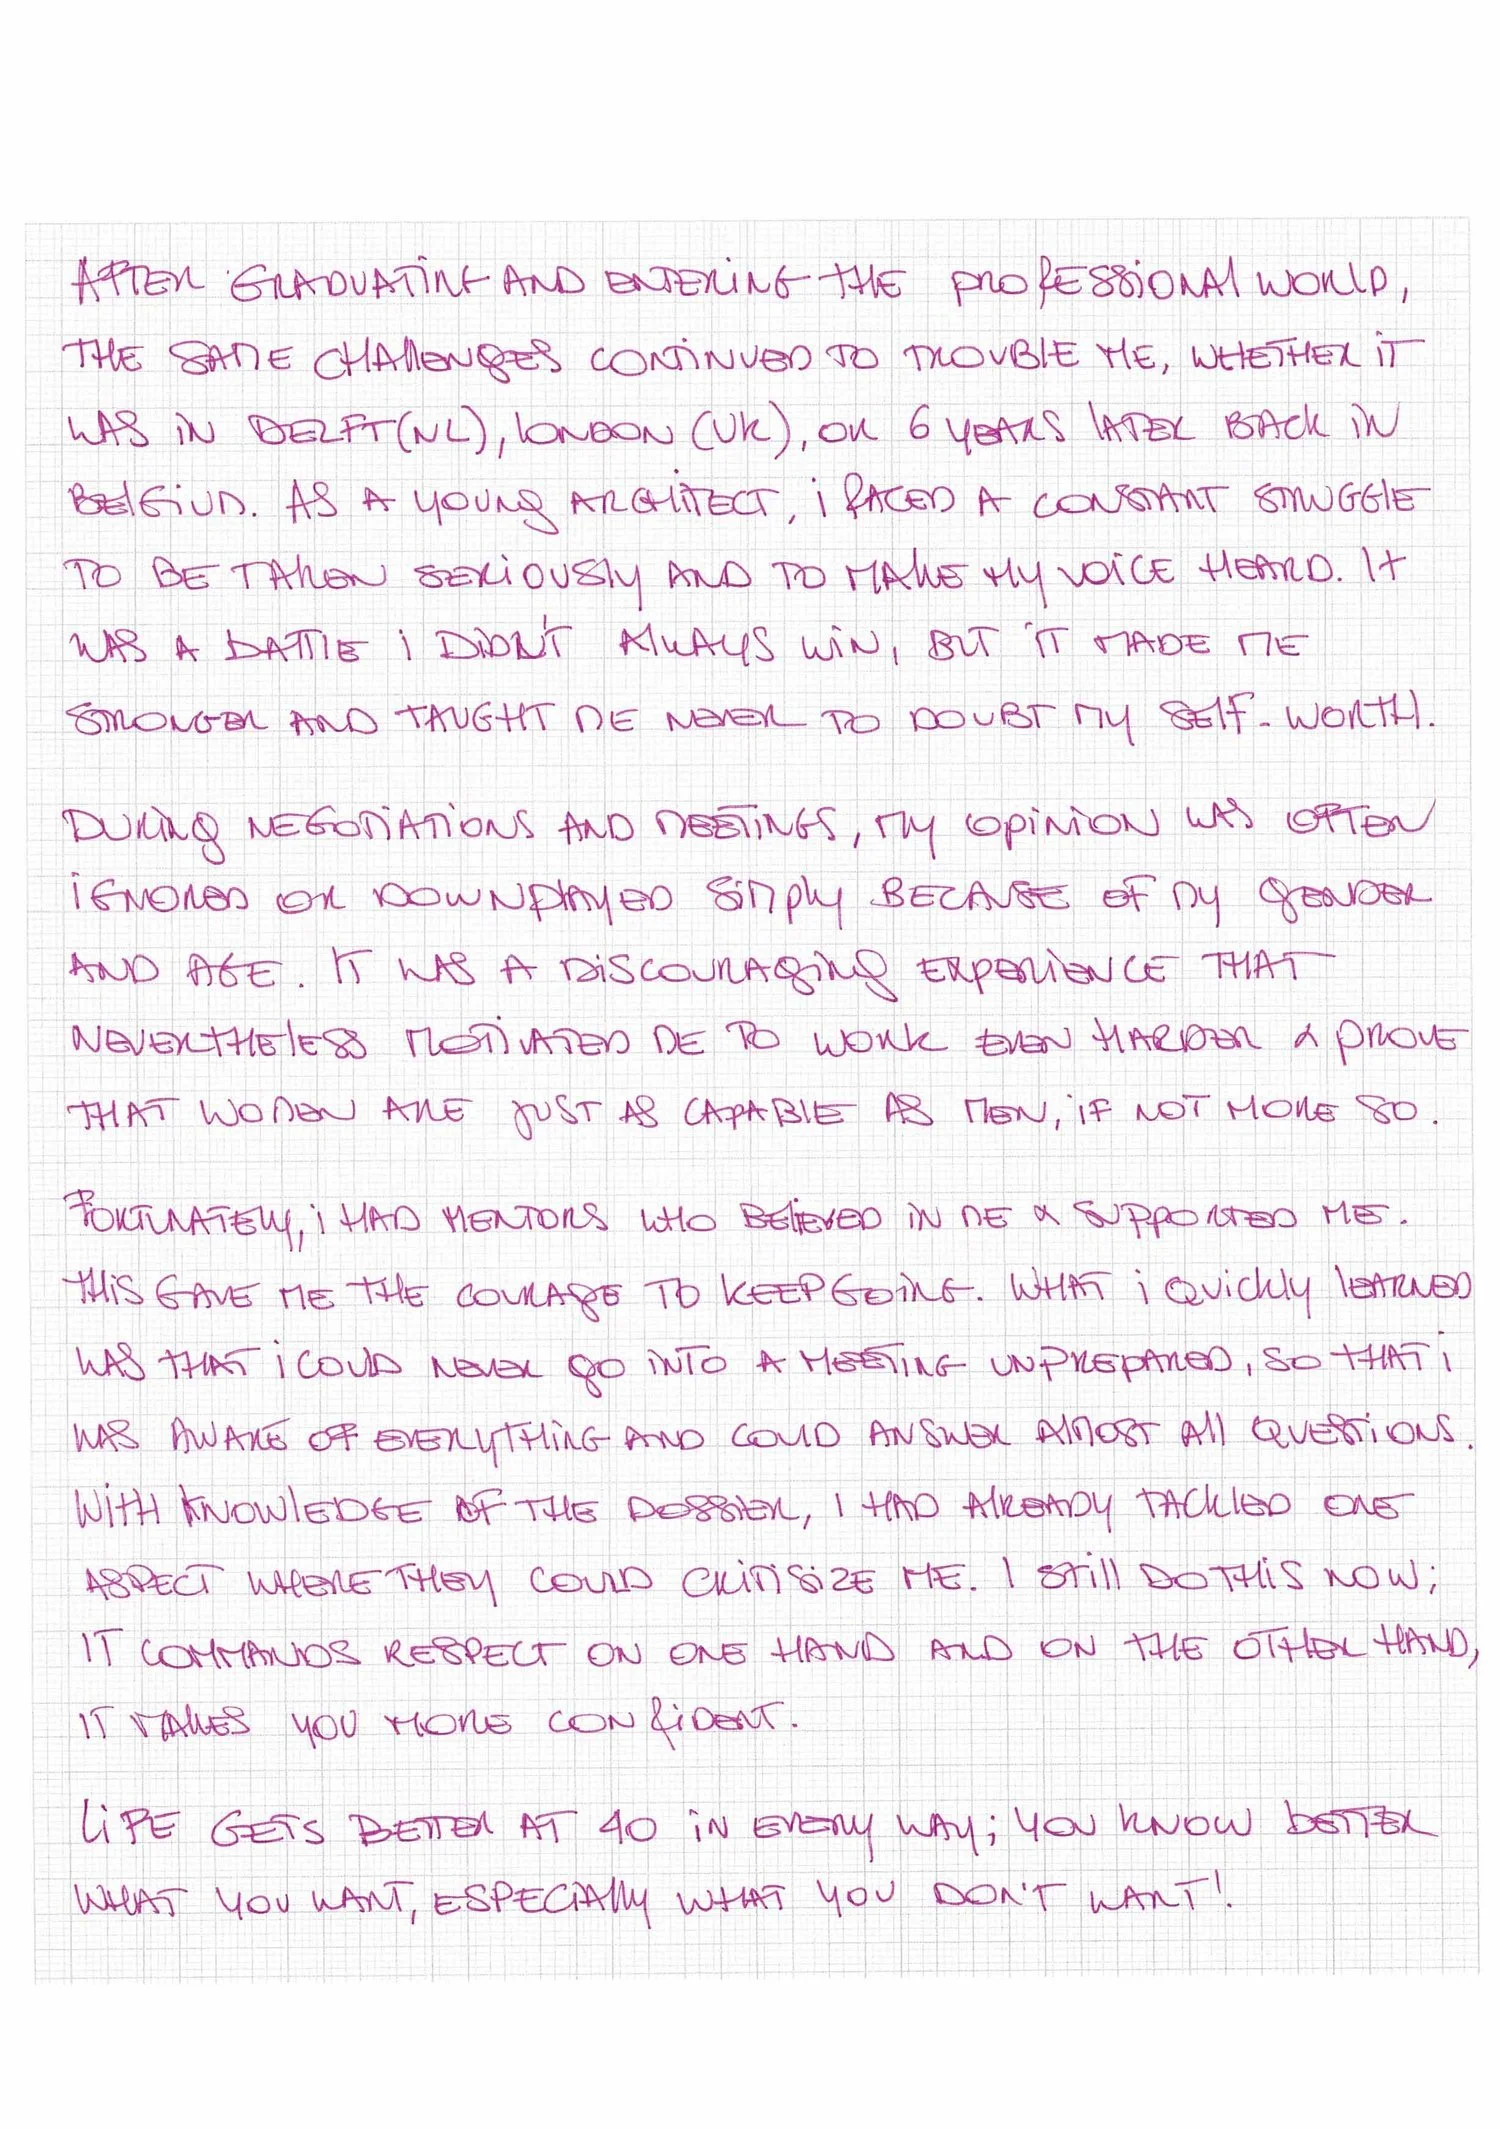 AFTER GRADUATING AND ENTERING THE PROFESSIONAL WORLD,
THE SAME CHALLENGES CONTINUED TO TROUBLE ME, WHETHER IT
WAS IN DELFT (NL), LONDON (UK), OR 6 YEARS LATER BACK IN
BELGIUM. AS A YOUNG ARCHITECT, I FACED A CONSTANT STRUGGLE
TO BE TAKEN SERIOUSLY AND TO MAKE MY VOICE HEARD. IT
WAS A BATTLE I DIDN'T ALWAYS WIN, BUT IT MADE ME
STRONGER AND TAUGHT ME NEVER TO DOUBT MY SELF-WORTH.
DURING NEGOTIATIONS AND MEETINGS, MY OPINION WAS OFTEN
IGNORED OR DOWNPLAYED SIMPLY BECAUSE OF MY GENDER
AND AGE. IT WAS A DISCOURAGING EXPERIENCE THAT
NEVERTHELESS MOTIVATED ME TO WORK EVEN HARDER & PROVE
THAT WOMEN ARE JUST AS CAPABLE AS MEN, IF NOT MORE SO.
FORTUNATELY, I HAD MENTORS WHO BELIEVED IN ME & SUPPORTED ME.
THIS GAVE ME THE COURAGE TO KEEP GOING. WHAT I QUICKLY LEARNED
WAS THAT I COULD NEVER GO INTO A MEETING UNPREPARED, SO THAT I
WAS AWARE OF EVERYTHING AND COULD ANSWER ALMOST ALL QUESTIONS.
WITH KNOWLEDGE OF THE DOSSIER, I HAD ALREADY TACKLED ONE
ASPECT WHERE THEY COULD CRITISIZE ME. I STILL DO THIS NOW;
IT COMMANDS RESPECT ON ONE HAND AND ON THE OTHER HAND,
IT MAKES YOU MORE CONFIDENT.
LIFE GETS BETTER AT 40 IN EVERY WAY; YOU KNOW BETTER
WHAT YOU WANT, ESPECIALLY WHAT YOU DON'T WANT!